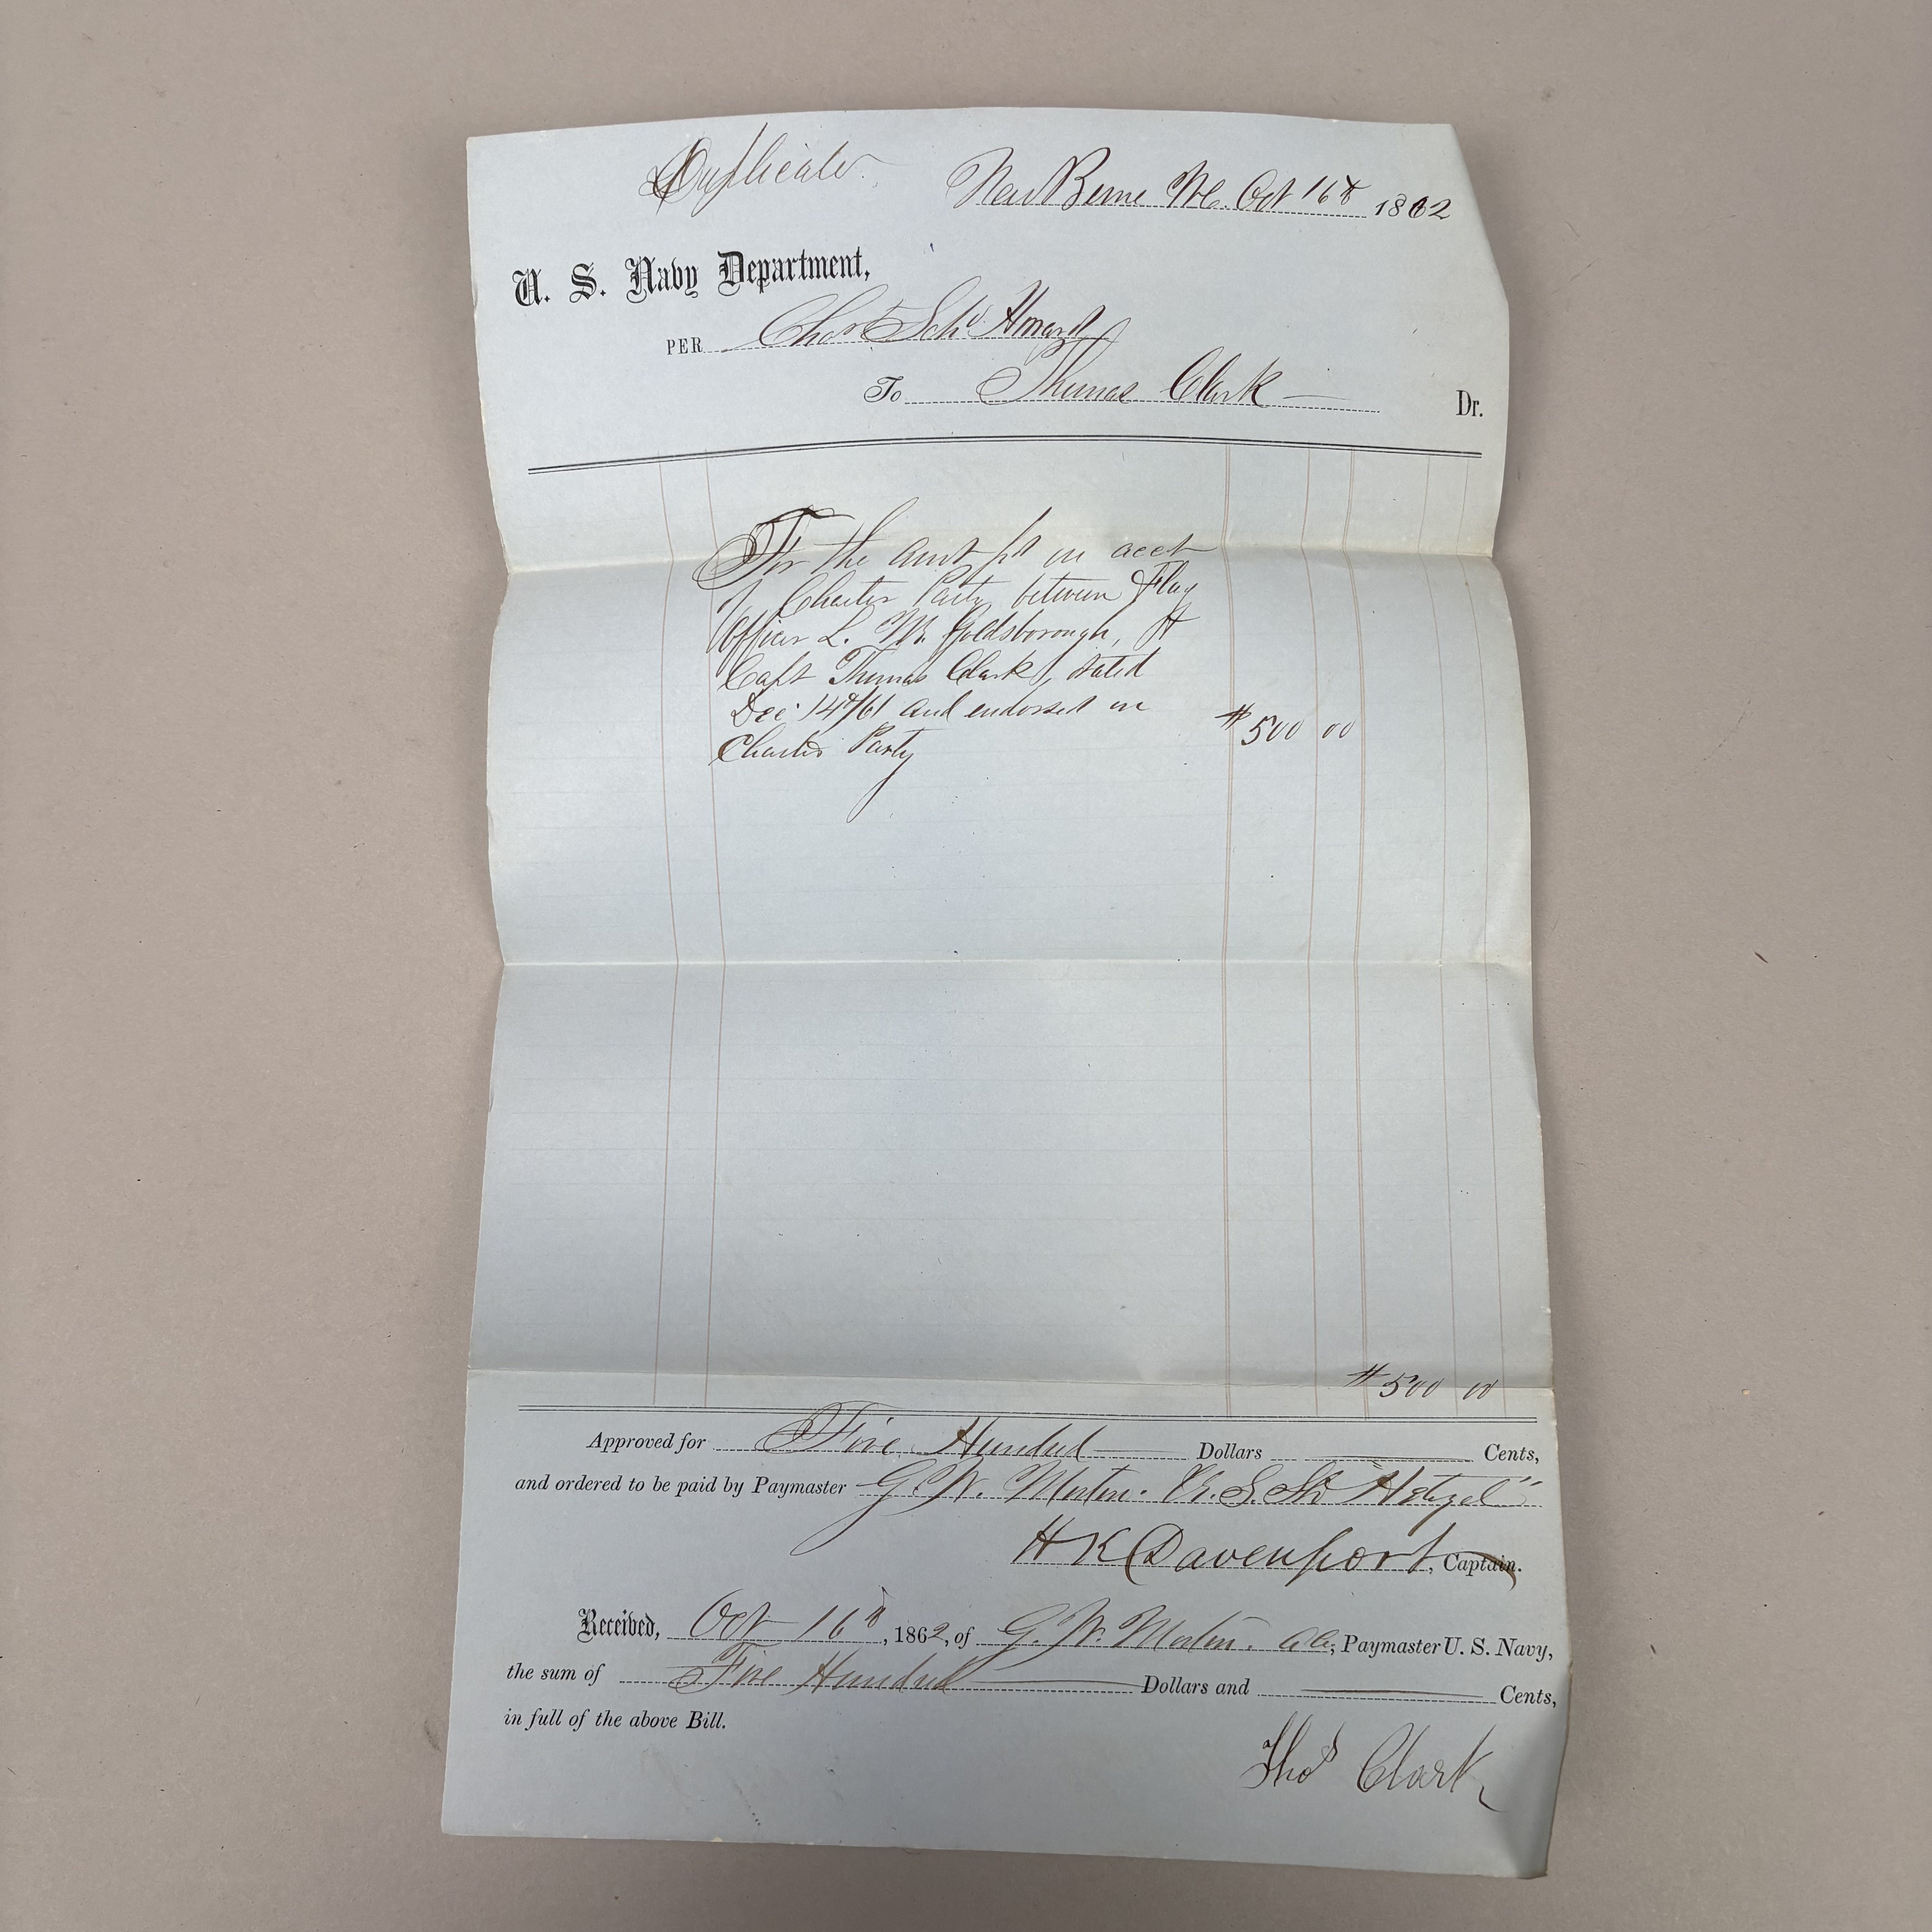 Duplicate.
New Berne N.C. Oct 16th 1862
U. S. Navy Department,
PER Chart'd Schr
To Thomas Clark Dr.
For the amt pd on acct
of Charter Party between Flag
Officer L. M. Goldsborough, &
Capt Thomas Clark, dated
Dec. 14th/61 and endorsed on
Charter Party $500 00
$500 00
Approved for Five Hundred Dollars Cents,
and ordered to be paid by Paymaster G. W. Morton. U. S. Str "Hetzel"
H K Davenport, Captain.
Received, Oct 16th, 1862, of G. W. Morton. , Paymaster U. S. Navy,
the sum of Five Hundred Dollars and Cents,
in full of the above Bill.
Thos Clark